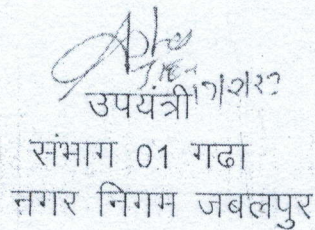 उपयंत्री
संभाग 01 गढा
नगर निगम जबलपुर